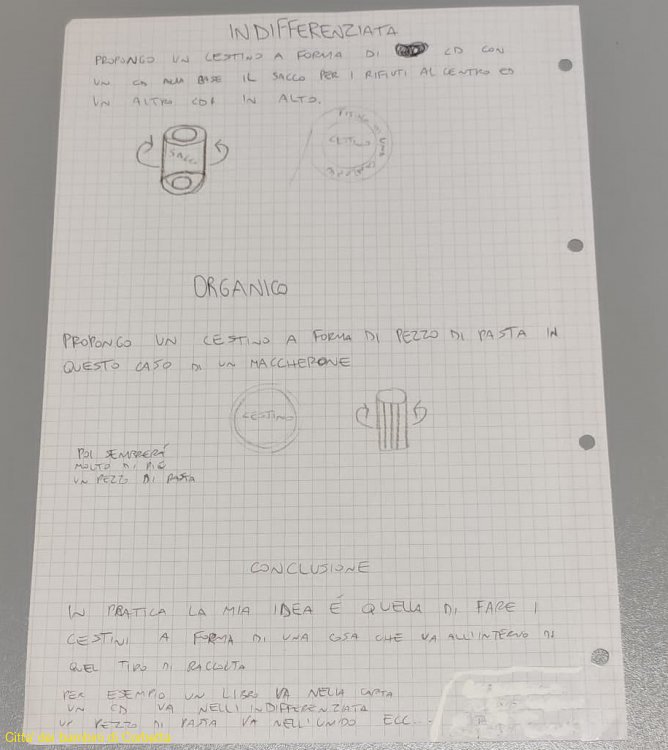 INDIFFERENZIATA
PROPONGO UN CESTINO A FORMA DI CD CON
UN CD ALLA BASE IL SACCO PER I RIFIUTI AL CENTRO ED
UN ALTRO CD IN ALTO.
SACCO
ORGANICO
PROPONGO UN CESTINO A FORMA DI PEZZO DI PASTA IN
QUESTO CASO DI UN MACCHERONE
CESTINO
POI SEMBRERÁ
MOLTO DI PIÙ
UN PEZZO DI PASTA
CONCLUSIONE
IN PRATICA LA MIA IDEA É QUELLA DI FARE I
CESTINI A FORMA DI UNA COSA CHE VA ALL'INTERNO DI
QUEL TIPO DI RACCOLTA
PER ESEMPIO UN LIBRO VA NELLA CARTA
UN CD VA NELL'INDIFFERENZIATA
UN PEZZO DI PASTA VA NELL'UMIDO ECC...
Citta' dei bambini di